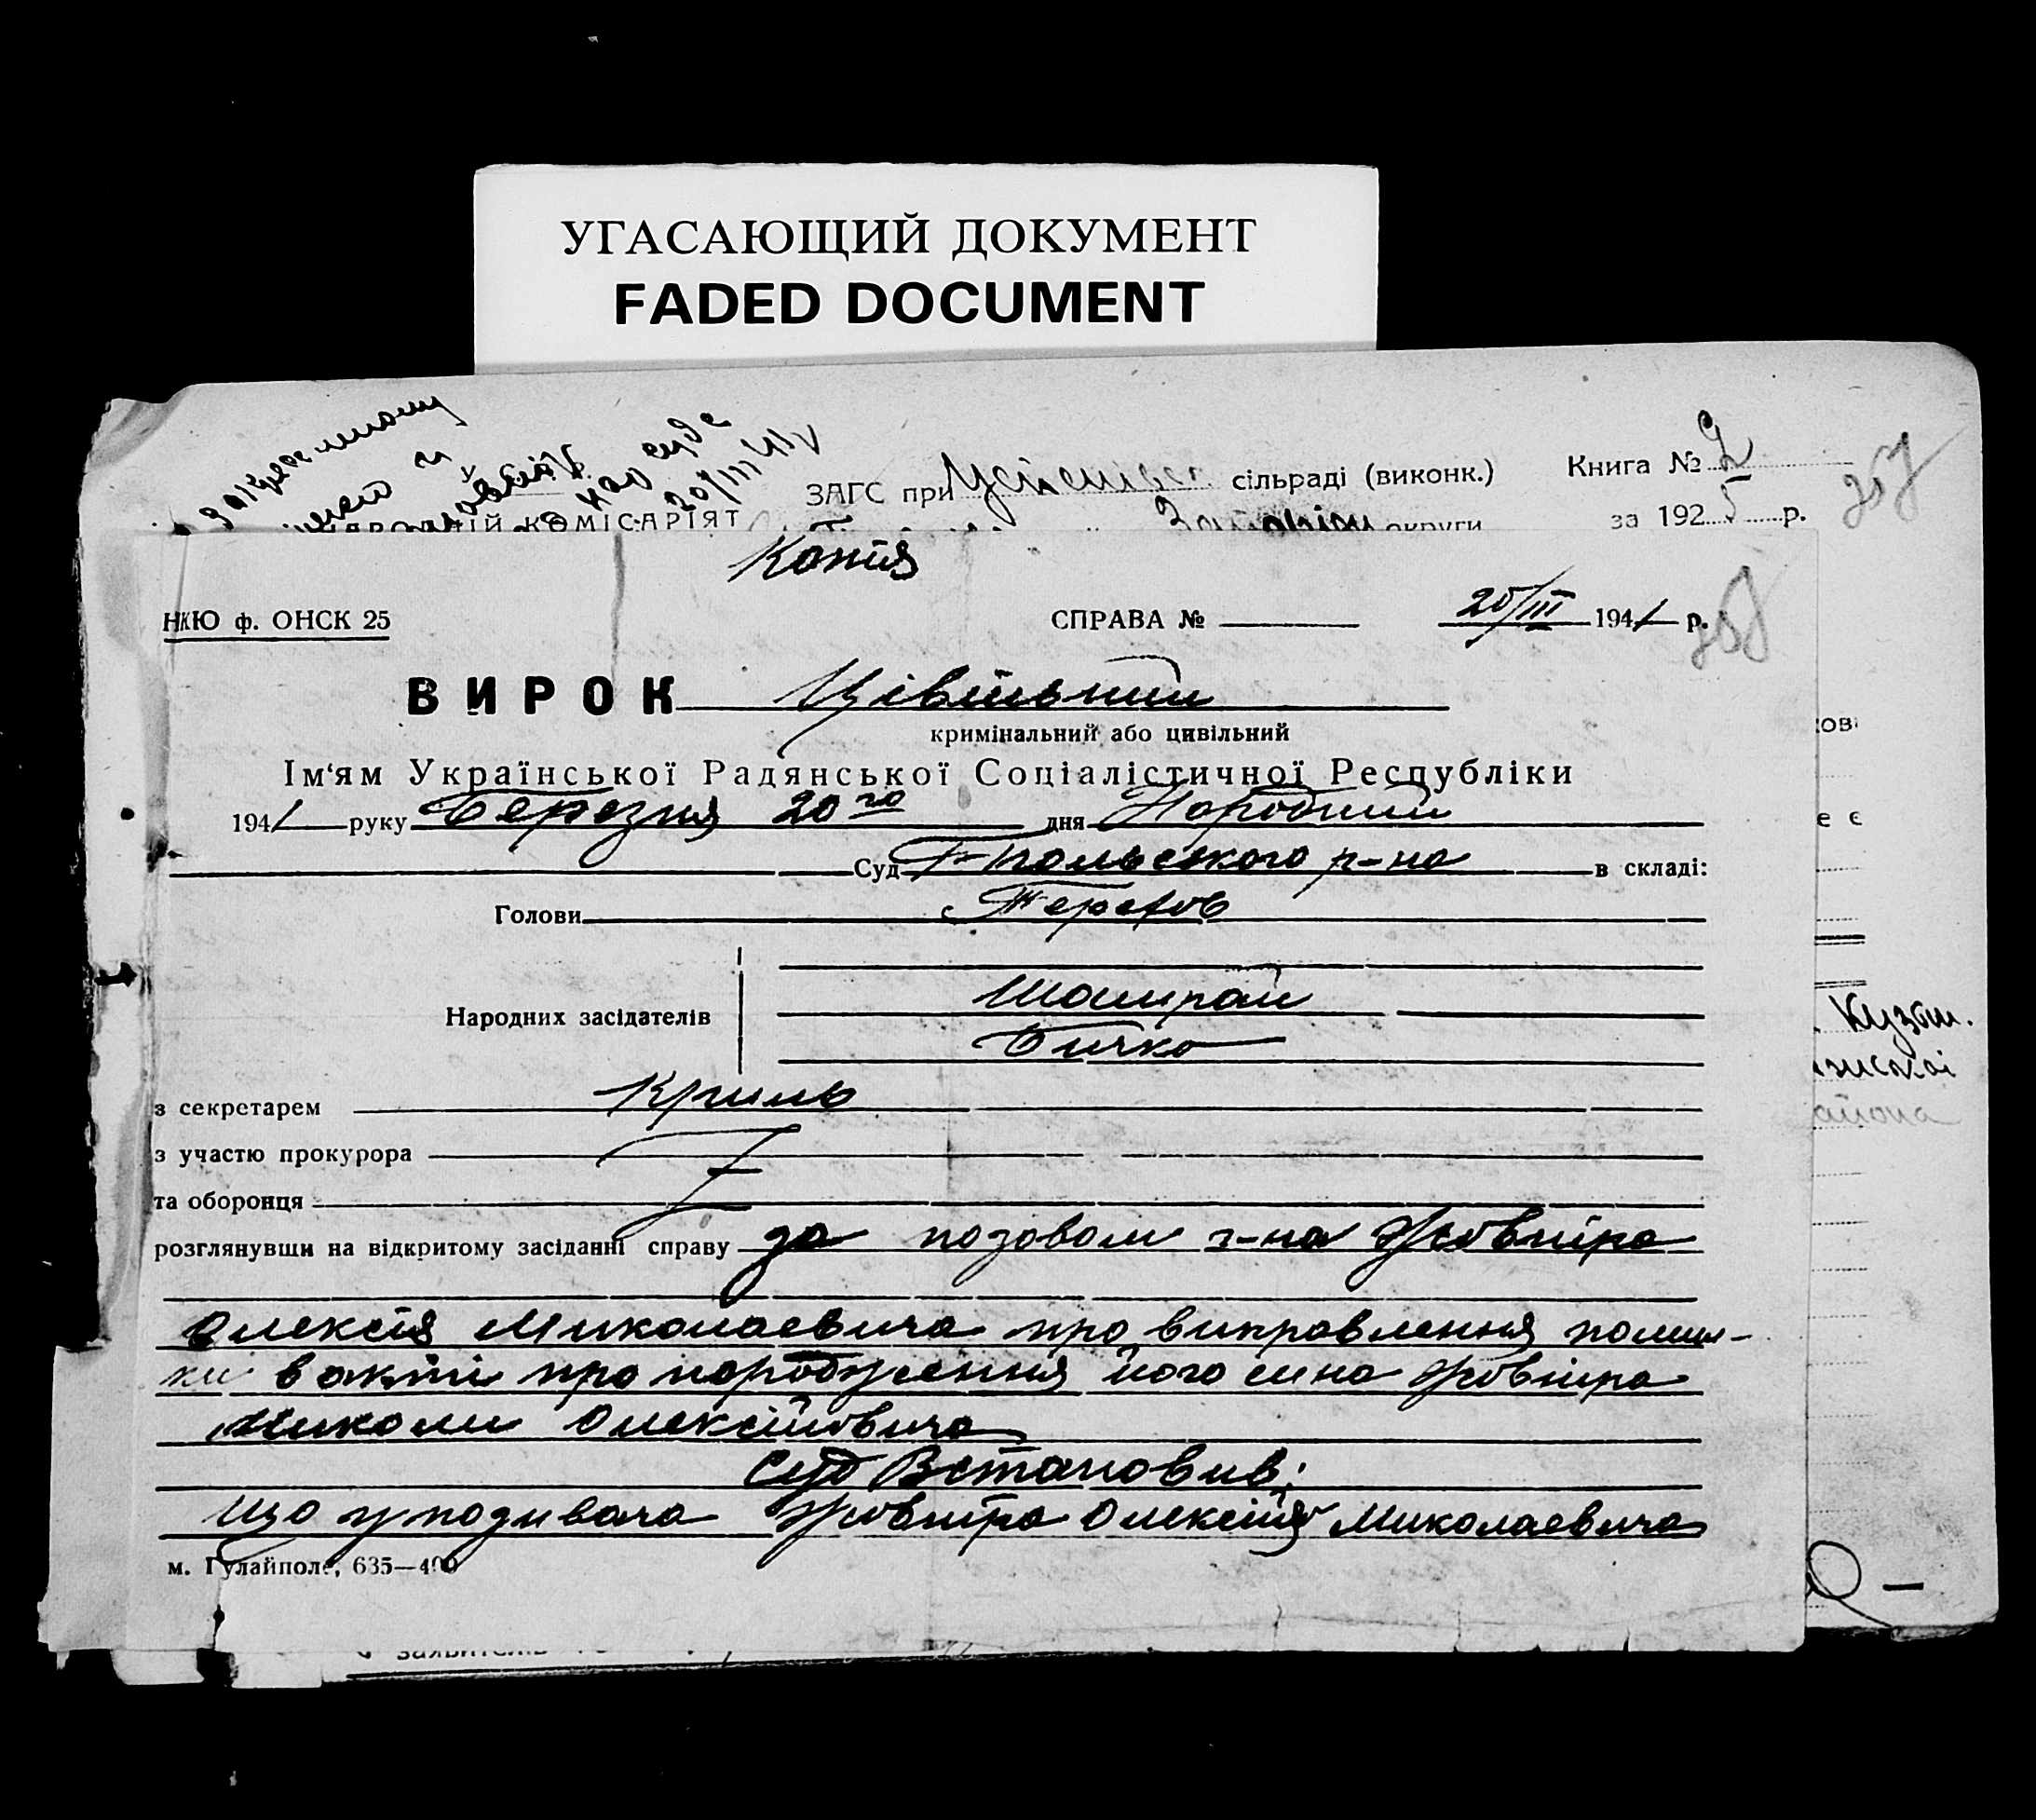 УГАСАЮЩИЙ ДОКУМЕНТ
FADED DOCUMENT
закресленому
и
нар суде
20/III 41
НАРОДНІЙ КОМІСАРІЯТ
ЗАГС при сільраді (виконк.)
Книга № 2
округи
за 1925 р.
Копія
НКЮ ф. ОНСК 25
СПРАВА №
20/III 1941 р.
ВИРОК Цівільний
кримінальний або цивільний
Ім'ям Української Радянської Соціалістичної Республіки
1941 року Березня 20го дня Народний
Суд Г-Польського р-на в складі:
Голови Терехов
Народних засідателів
Шамрай
Бичко
з секретарем Криль
з участю прокурора
та оборонця
розглянувши на відкритому засіданні справу за позовом г-на Жовніра
Олексія Миколаевича про виправлення помил-
ки в акті про народження його сина Жовніра
Миколи Олексійовича
Суд Встановив:
Що у подивача Жовніра Олексія Миколаевича
м. Гуляйполе, 635—400
Кузьм.
айона